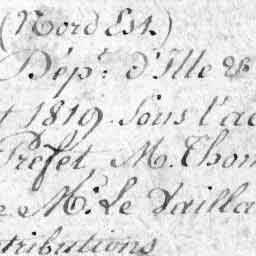 (Nord Est.)
Dép.t d'Ille &
t 1819. Sous l'ad
Préfet, M. Thom
e M.r Le Vailla
tributions